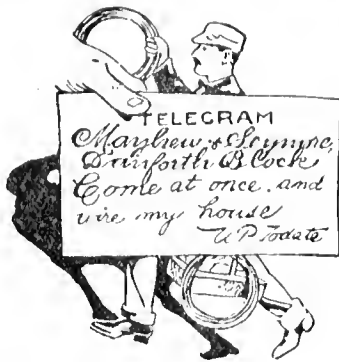 TELEGRAM
Mayhew & Seymore,
Danforth B Lock
Come at once. and
wire my house
U P Todate